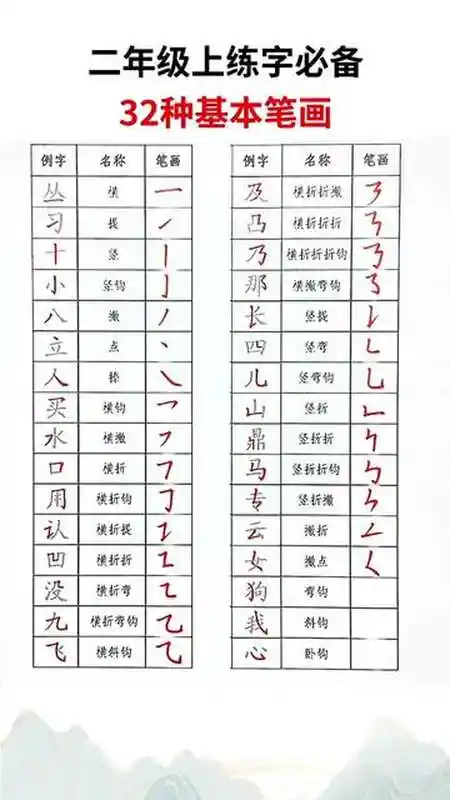 二年级上练字必备
32种基本笔画
例字 名称 笔画
丛 横 ㇐
习 提 ㇀
十 竖 ㇑
小 竖钩 ㇚
八 撇 ㇒
立 点 ㇔
人 捺 ㇏
买 横钩 ㇖
水 横撇 ㇇
口 横折 ㇕
用 横折钩 ㇆
认 横折提 ㇊
凹 横折折 ㇅
没 横折弯 ㇍
九 横折弯钩 ㇈
飞 横斜钩 ⺄
例字 名称 笔画
及 横折折撇 ㇋
凸 横折折折 ㇎
乃 横折折折钩 ㇡
那 横撇弯钩 ㇌
长 竖提 ㇙
四 竖弯 ㇄
儿 竖弯钩 ㇟
山 竖折 ㇗
鼎 竖折折 ㇞
马 竖折折钩 ㇉
专 竖折撇 ㇞
云 撇折 ㇜
女 撇点 ㇛
狗 弯钩
我 斜钩
心 卧钩